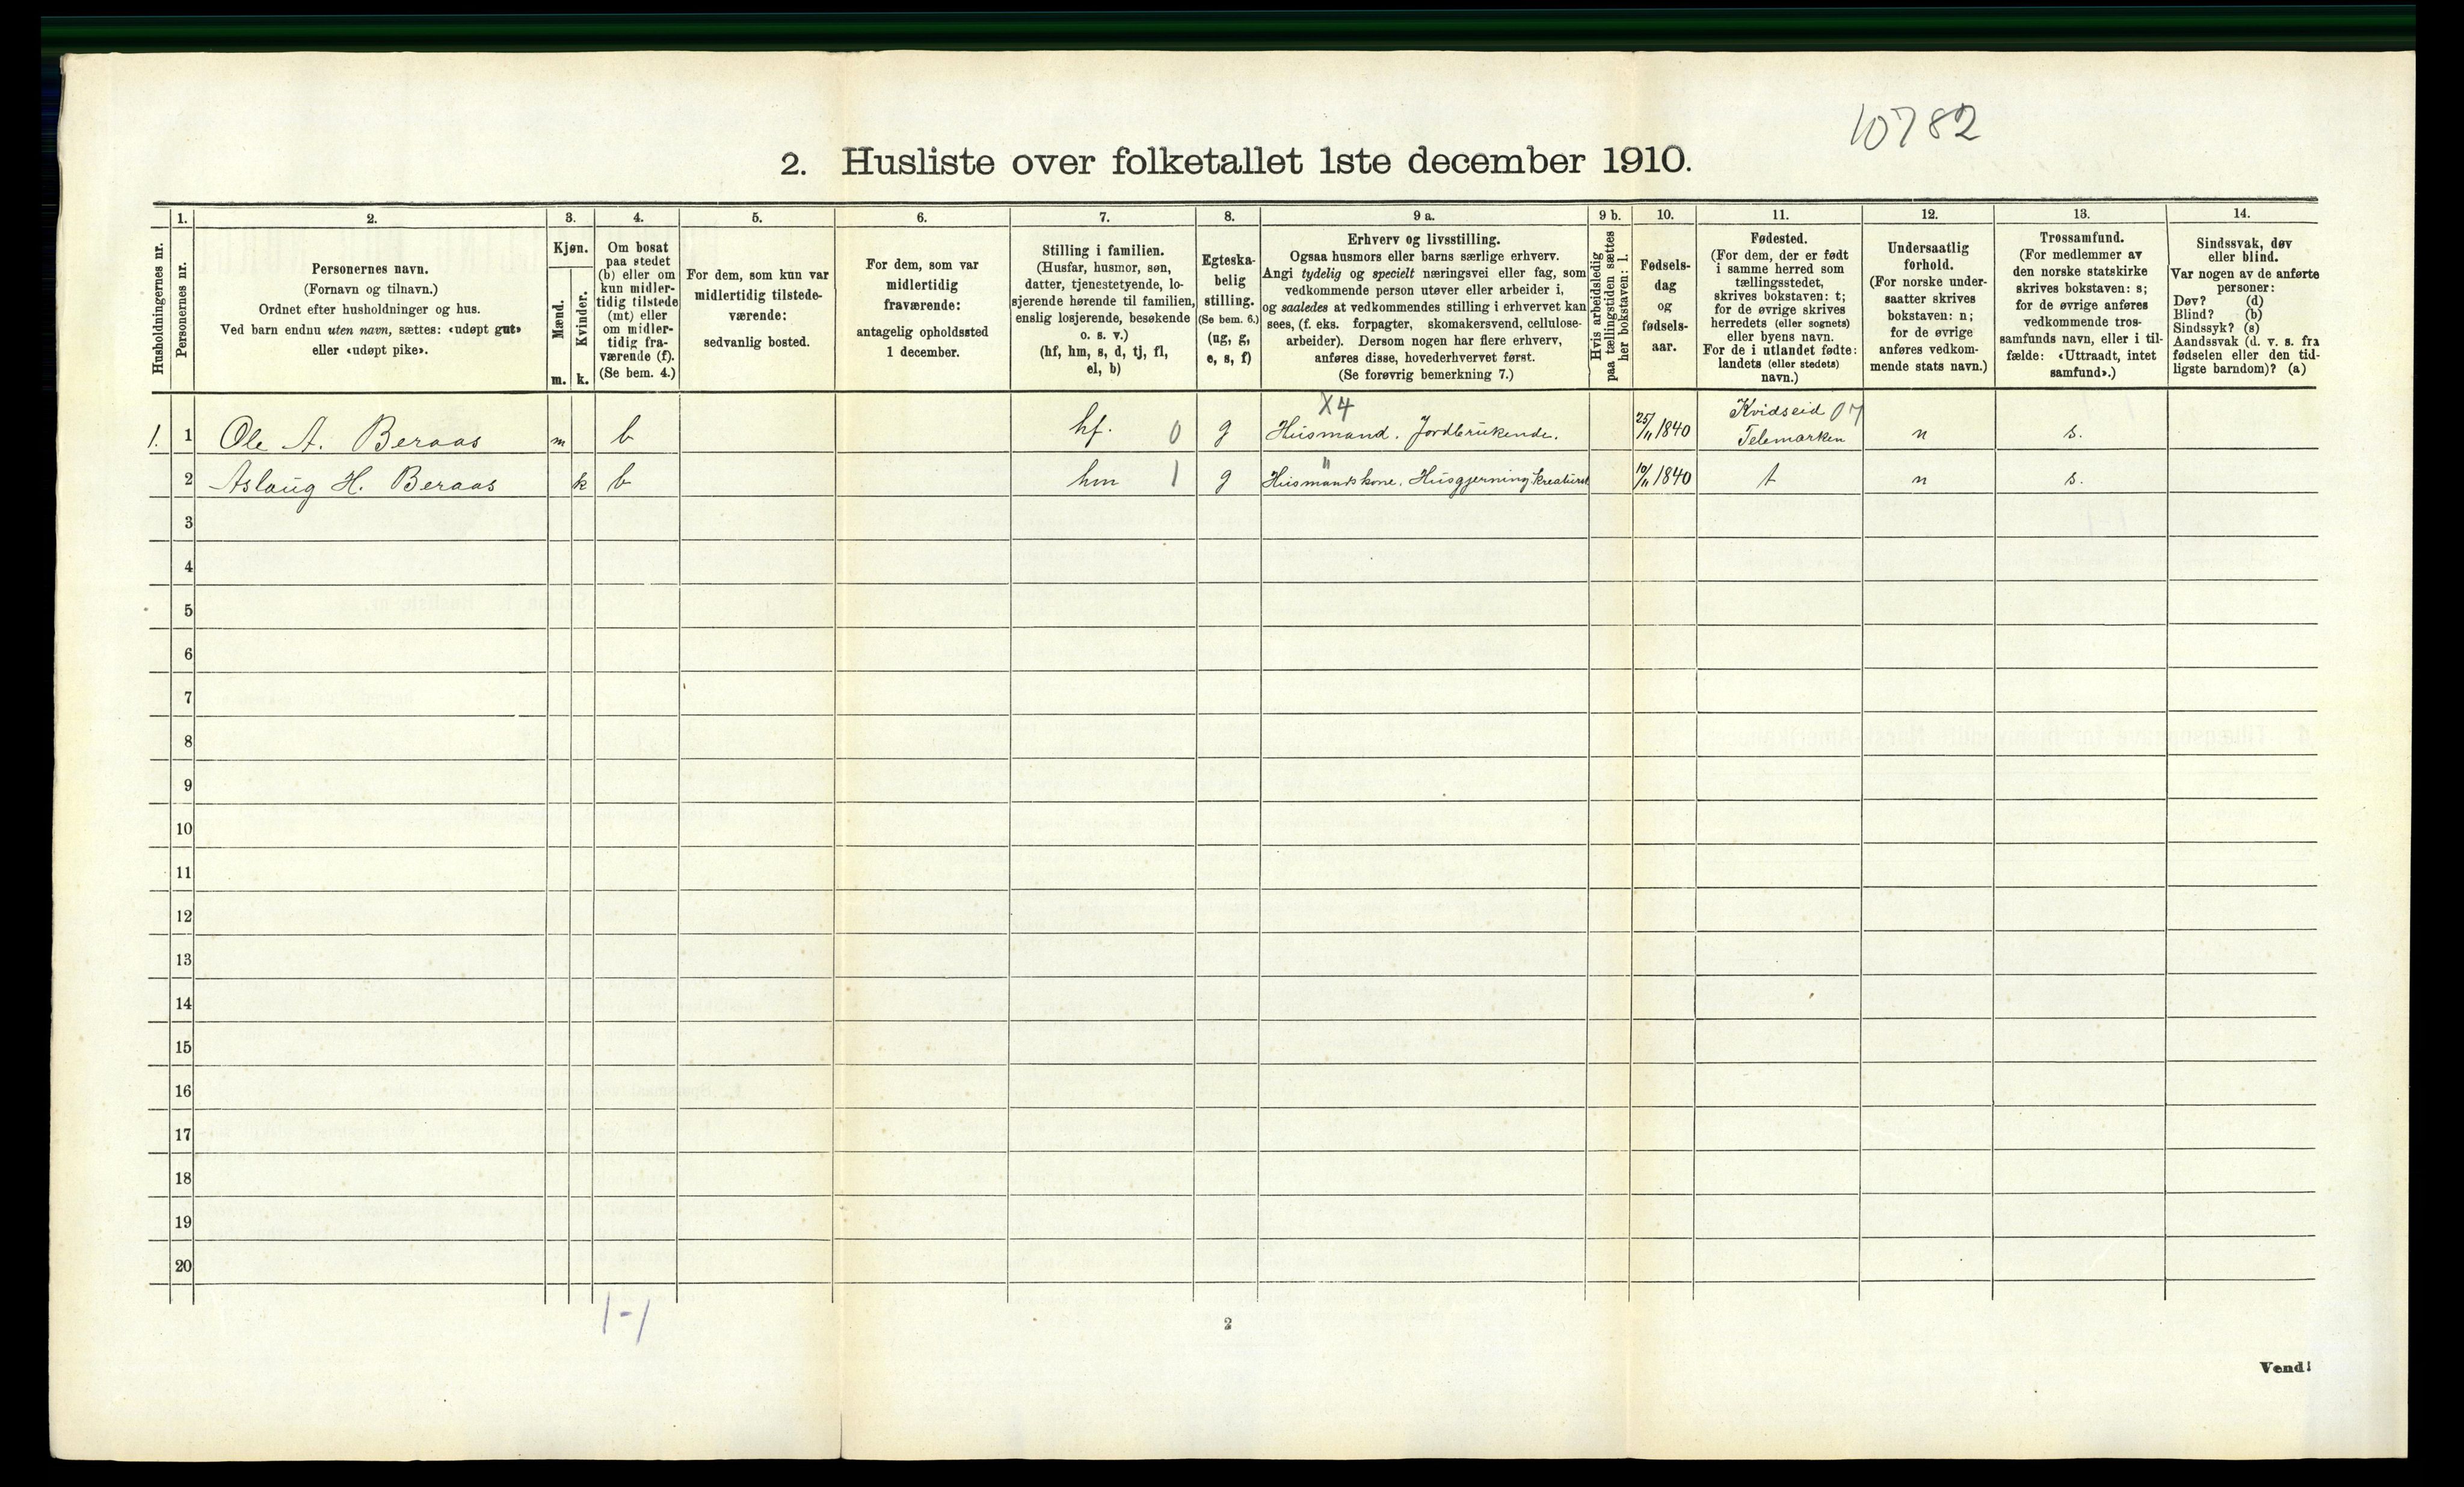 10782
2. Husliste over folketallet 1ste december 1910.
Husholdningernes nr.
1.
Personernes nr.
2.
Personernes navn.
(Fornavn og tilnavn.)
Ordnet efter husholdninger og hus.
Ved barn endnu uten navn, sættes: «udøpt gut»
eller «udøpt pike».
3.
Kjøn.
Mænd.
m.
Kvinder.
k.
4.
Om bosat
paa stedet
(b) eller om
kun midler-
tidig tilstede
(mt) eller
om midler-
tidig fra-
værende (f).
(Se bem. 4.)
5.
For dem, som kun var
midlertidig tilstede-
værende:
sedvanlig bosted.
6.
For dem, som var
midlertidig
fraværende:
antagelig opholdssted
1 december.
7.
Stilling i familien.
(Husfar, husmor, søn,
datter, tjenestetyende, lo-
sjerende hørende til familien,
enslig losjerende, besøkende
o. s. v.)
(hf, hm, s, d, tj, fl,
el, b)
8.
Egteska-
belig
stilling.
(Se bem. 6.)
(ug, g,
e, s, f)
9 a.
Erhverv og livsstilling.
Ogsaa husmors eller barns særlige erhverv.
Angi tydelig og specielt næringsvei eller fag, som
vedkommende person utøver eller arbeider i,
og saaledes at vedkommendes stilling i erhvervet kan
sees, (f. eks. forpagter, skomakersvend, cellulose-
arbeider). Dersom nogen har flere erhverv,
anføres disse, hovederhvervet først.
(Se forøvrig bemerkning 7.)
9 b.
Hvis arbeidsledig
paa tællingstiden sættes
her bokstaven: l.
10.
Fødsels-
dag
og
fødsels-
aar.
11.
Fødested.
(For dem, der er født
i samme herred som
tællingsstedet,
skrives bokstaven: t;
for de øvrige skrives
herredets (eller sognets)
eller byens navn.
For de i utlandet fødte:
landets (eller stedets)
navn.)
12.
Undersaatlig
forhold.
(For norske under-
saatter skrives
bokstaven: n;
for de øvrige
anføres vedkom-
mende stats navn.)
13.
Trossamfund.
(For medlemmer av
den norske statskirke
skrives bokstaven: s;
for de øvrige anføres
vedkommende tros-
samfunds navn, eller i til-
fælde: «Uttraadt, intet
samfund».)
14.
Sindssvak, døv
eller blind.
Var nogen av de anførte
personer:
Døv? (d)
Blind? (b)
Sindssyk? (s)
Aandssvak (d. v. s. fra
fødselen eller den tid-
ligste barndom)? (a)
X4
1. 1 Ole A. Beraas m b hf. 0 g Husmand. Jordbrukende. 25/11 1840 Kvidseid 07
Telemarken n s.
"
2 Aslaug H. Beraas k b hm 1 g Husmandskone. Husgjerning kreaturst 10/11 1840 t n s.
3
4
5
6
7
8
9
10
11
12
13
14
15
16
17
18
19
20
1-1
2
Vend!